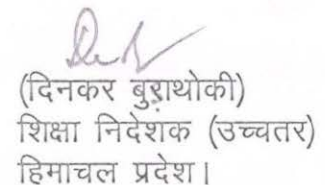 (दिनकर बुराथोकी)
शिक्षा निदेशक (उच्चतर)
हिमाचल प्रदेश।